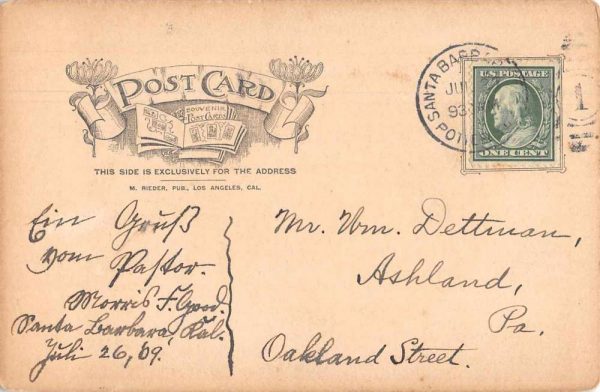 POST CARD
SOUVENIR
POST CARDS
THIS SIDE IS EXCLUSIVELY FOR THE ADDRESS
M. RIEDER, PUB., LOS ANGELES, CAL.
SANTA BARB
JU
93
U.S. POSTAGE
ONE CENT
1
Ein Gruß
vom Pastor.
Morris F. Good.
Santa Barbara, Kal.
Juli 26, '09.
Mr. Wm. Dettman,
Ashland,
Pa.
Oakland Street.